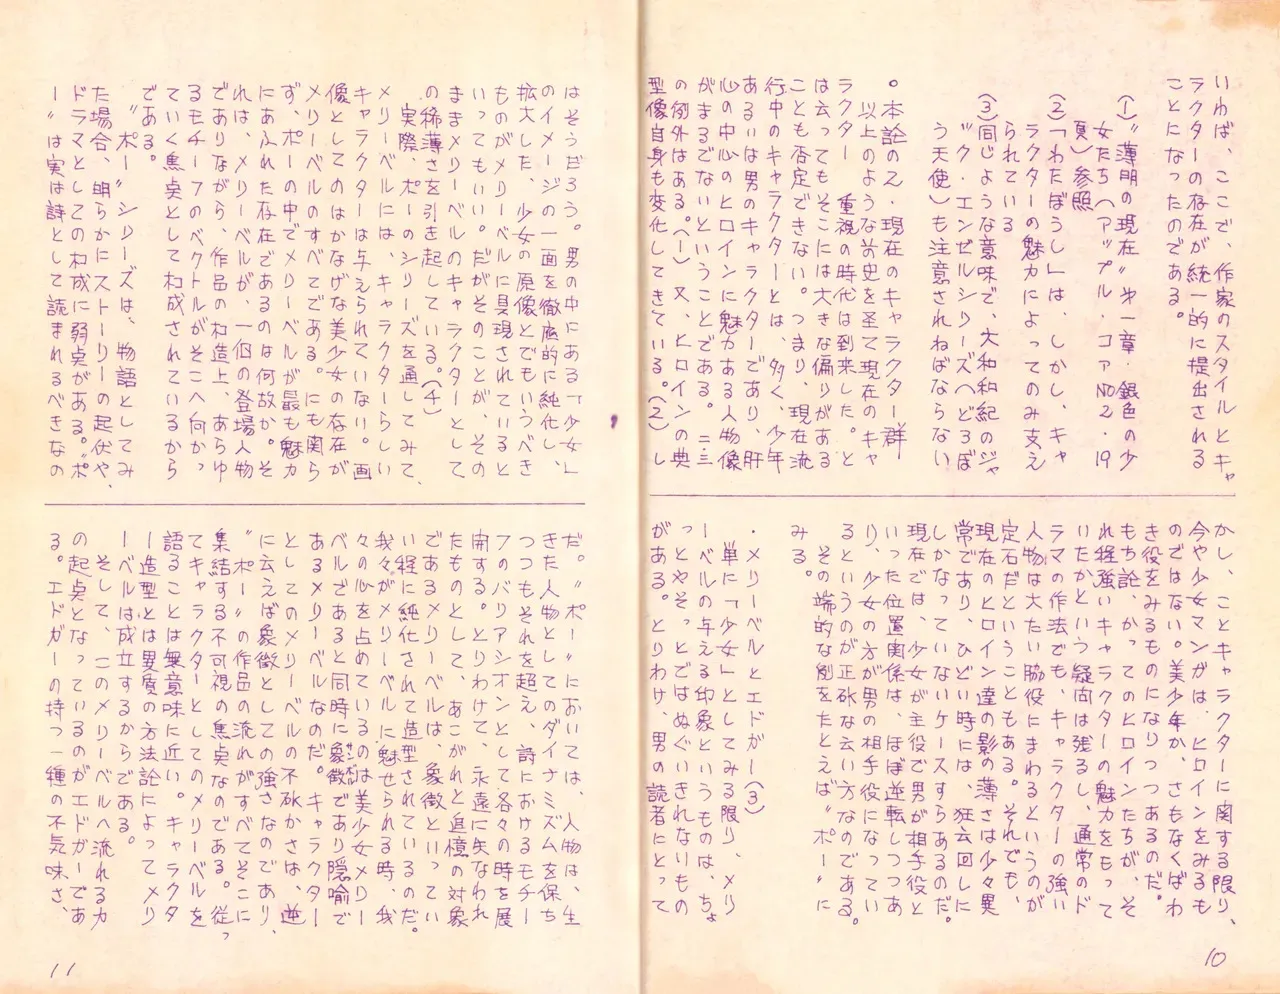 いわば、ここで、作家のスタイルとキャ
ラクターの存在が統一的に提出される
ことになったのである。
(1)〝薄明の現在〟第一章・銀色の少
女たち(アップル・コアNO2・19
頁)参照
(2)「わたぼうし」は、しかし、キャ
ラクターの魅力によってのみ支え
られている
(3)同じような意味で、大和和紀のジャ
ック・エンゼルシリーズ(どろぼ
う天使)も注意されねばならない
○本論の2・現在のキャラクター群
以上のような前史を圣て現在のキャ
ラクター重視の時代は到来した。と
は云ってもそこには大きな偏りがある
ことも否定できない。つまり、現在流
行中のキャラクターとは、多く、少年
あるいは男のキャラクターであり、肝
心の中心のヒロインに魅力ある人物像
がまるでないということである。二三
の例外はある。(1)又、ヒロインの典
型像自身も変化してきている。(2)し
かし、ことキャラクターに関する限り、
今や少女マンガは、ヒロインをみるも
のではない。美少年か、さもなくばわ
き役をみるものになりつつあるのだ。
もち論、かってのヒロインたちが、そ
れ程強いキャラクターの魅力をもって
いたかという疑向は残るし、通常のド
ラマの作法でも、キャラクターの強い
人物は大たい脇役にまわるというのが
定石だということもある。それでも、
現在のヒロイン達の影の薄さは少々異
常であり、ひどい時には、狂言回しに
しかなっていないケースすらあるのだ。
現在では、少女が主役で男が相手役と
いった位置関係は、ほぼ逆転しつつあ
り、少女の方が男の相手役になってい
るというのが正確な云い方なのである。
その端的な例をたとえば〝ポー〟に
みる。
・メリーベルとエドガー(3)
単に「少女」としてみる限り、メリ
ーベルの与える印象というものは、ちょ
っとやそっとではぬぐいきれないもの
がある。とりわけ、男の読者にとって
はそうだろう。男の中にある「少女」
のイメージの一面を徹底的に純化し、
拡大した、少女の原像とでもいうべき
ものがメリーベルに具現されていると
いってもいい。だがそのことが、その
ままメリーベルのキャラクターとして
の稀薄さを引き起している。(4)
実際、ポーのシリーズを通してみて、
メリーベルには、キャラクターらしい
キャラクターは与えられていない。画
像としてのはかなげな美少女の存在が
メリーベルのすべてである。にも関ら
ず、ポーの中でメリーベルが最も魅力
にあふれた存在であるのは何故か。そ
れは、メリーベルが、一個の登場人物
でありながら、作品の构造上、あらゆ
るモチーフのベクトルがそこへ向かっ
ていく焦点として构成されているから
である。
〝ポー〟シリーズは、物語としてみ
た場合、明らかにストーリーの起伏や、
ドラマとしての构成に弱点がある。〝ポ
ー〟は実は詩として読まれるべきなの
だ。〝ポー〟においては、人物は、生
きた人物としてのダイナミズムを保ち
つつもそれを超え、詩におけるモチー
フのバリアシオンとして各々の時を展
開する。とりわけて、永遠に失なわれ
たものとして、あこがれと追憶の対象
であるメリーベルは、象徴といってい
い程に純化されて造型されているのだ。
我々がメリーベルに魅せられる時、我
々の心を占めているのは美少女メリー
ベルであると同時に象徴であり隠喩で
あるメリーベルなのだ。キャラクター
としてのメリーベルの不確かさは、逆
に云えば象徴としての強さなのであり、
〝ポー〟の作品の流れがすべてそこに
集結する不可視の焦点なのである。従っ
てキャラクターとしてのメリーベルを
語ることは無意味に近い。キャラクタ
ー造型とは異質の方法論によってメリ
ーベルは成立するからである。
そして、このメリーベルへ流れる力
の起点となっているのがエドガーであ
る。エドガーの持つ一種の不気味さ、
10
11